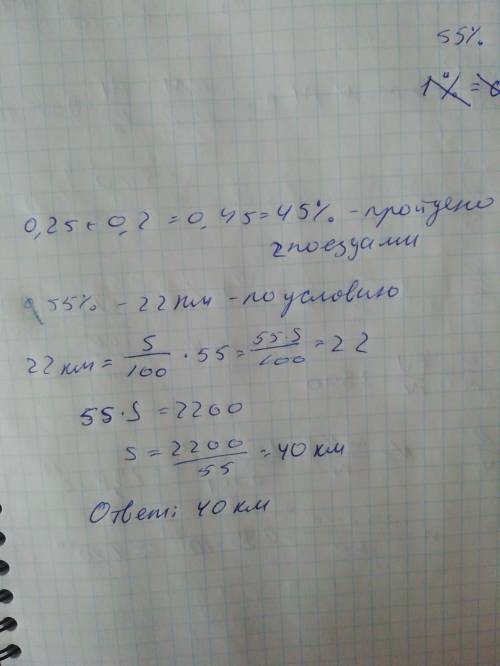 55%
1% = 0
0,25 + 0,2 = 0,45 = 45% - пройдено
2 поездами
55% - 22 км - по условию
22 км = S/100 · 55 = 55·S/100 = 22
55·S = 2200
S = 2200/55 = 40 км
Ответ: 40 км